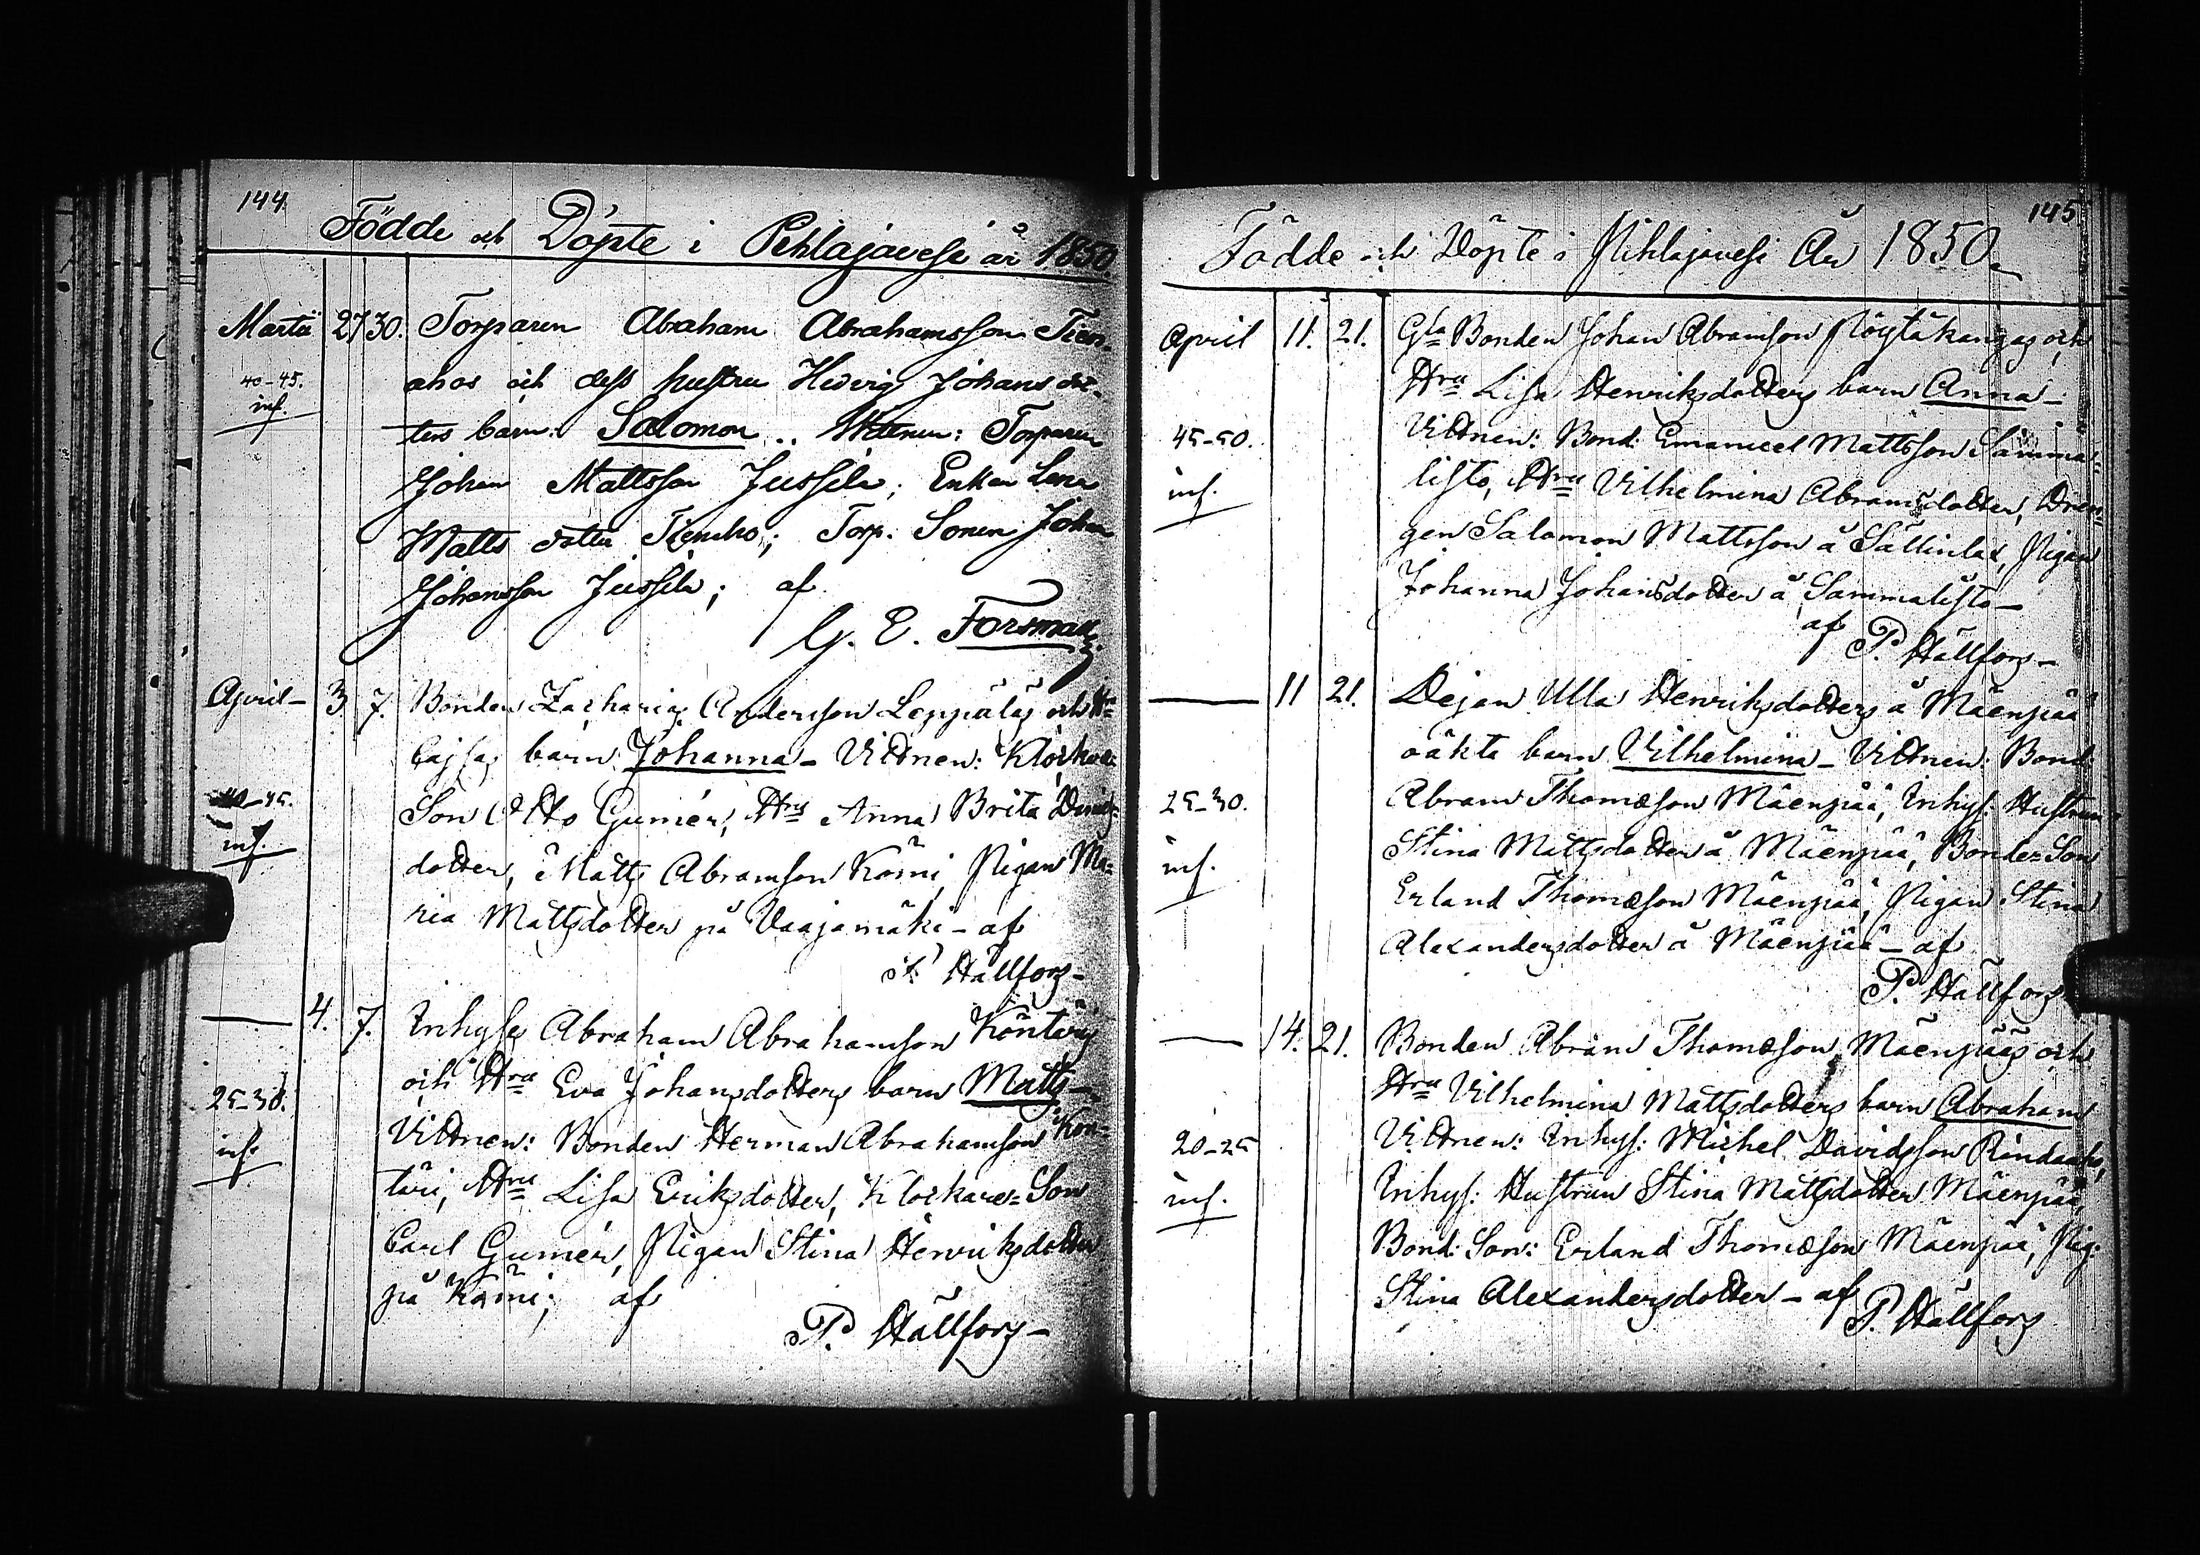 144.
Födde och Döpte i Pihlajavesi år 1850.
Martii 27 30. Torparen Abraham Abrahamsson Tien-
40-45. ahos och dess hustru Hedvig Johans dot-
inf. ters barn: Salomon .. Vittnen: Torparen
Johan Mattsson Jussila; Enkan Lena
Matts dotter Tienaho; Torp. Sonen Johan
Johansson Jussila; af
G. E. Forsman
April – 3. 7. Bonden Zacharias Andersson Leppäläs och Hu
Cajsas barn Johanna – Vittnen: Klockare
40-45. Son Otto Gumér, Hru Anna Brita Davids=
inf. dotter, Matts Abramson Kömi, Pigan Ma=
ria Mattsdotter på Vaajamäki – af
P. Hällfors –
— 4. 7. Inhyses Abraham Abrahamson Köntäris
och Hru Eva Johansdotters barn Matts –
25-30. Vittnen: Bonden Herman Abrahamson Kön=
inf. täri, Hru Lisa Eriksdotter, Klockare=Son
Carl Gumér, Pigan Stina Henriksdotter
på Kömi; af
P. Hällfors –
145
Födde och Döpte i Pihlajavesi År 1850
April 11. 21. Gla Bonden Johan Abramson Pöystäkangas och
Hru Lisa Henriksdotters barn Anna –
45-50. Vittnen: Bond: Emanuel Mattsson Samma=
inf. listo, Hru Vilhelmina Abramsdotter, Drän=
gen Salomon Mattsson å Sällinlax, Pigan
Johanna Johansdotter å Sammalisto –
af
P. Hällfors –
— 11 21. Dejan Ulla Henriksdotters å Mäenpää
oäkta barn Vilhelmina – Vittnen: Bond:
25-30. Abram Thomæson Mäenpää, Inhys: Hustrun
inf. Stina Mattsdotter å Mäenpää, Bonde=Son
Erland Thomæson Mäenpää, Pigan Stina
Alexandersdotter å Mäenpää – af
P. Hällfors
— 14. 21. Bonden Abram Thomæson Mäenpääs och
Hru Vilhelmina Mattsdotters barn Abraham
20-25 Vittnen: Inhys: Michel Davidsson Rindaaho,
inf. Inhys: Hustrun Stina Mattsdotter Mäenpää,
Bond: Son: Erland Thomæson Mäenpää, Pig:
Stina Alexandersdotter – af
P. Hällfors